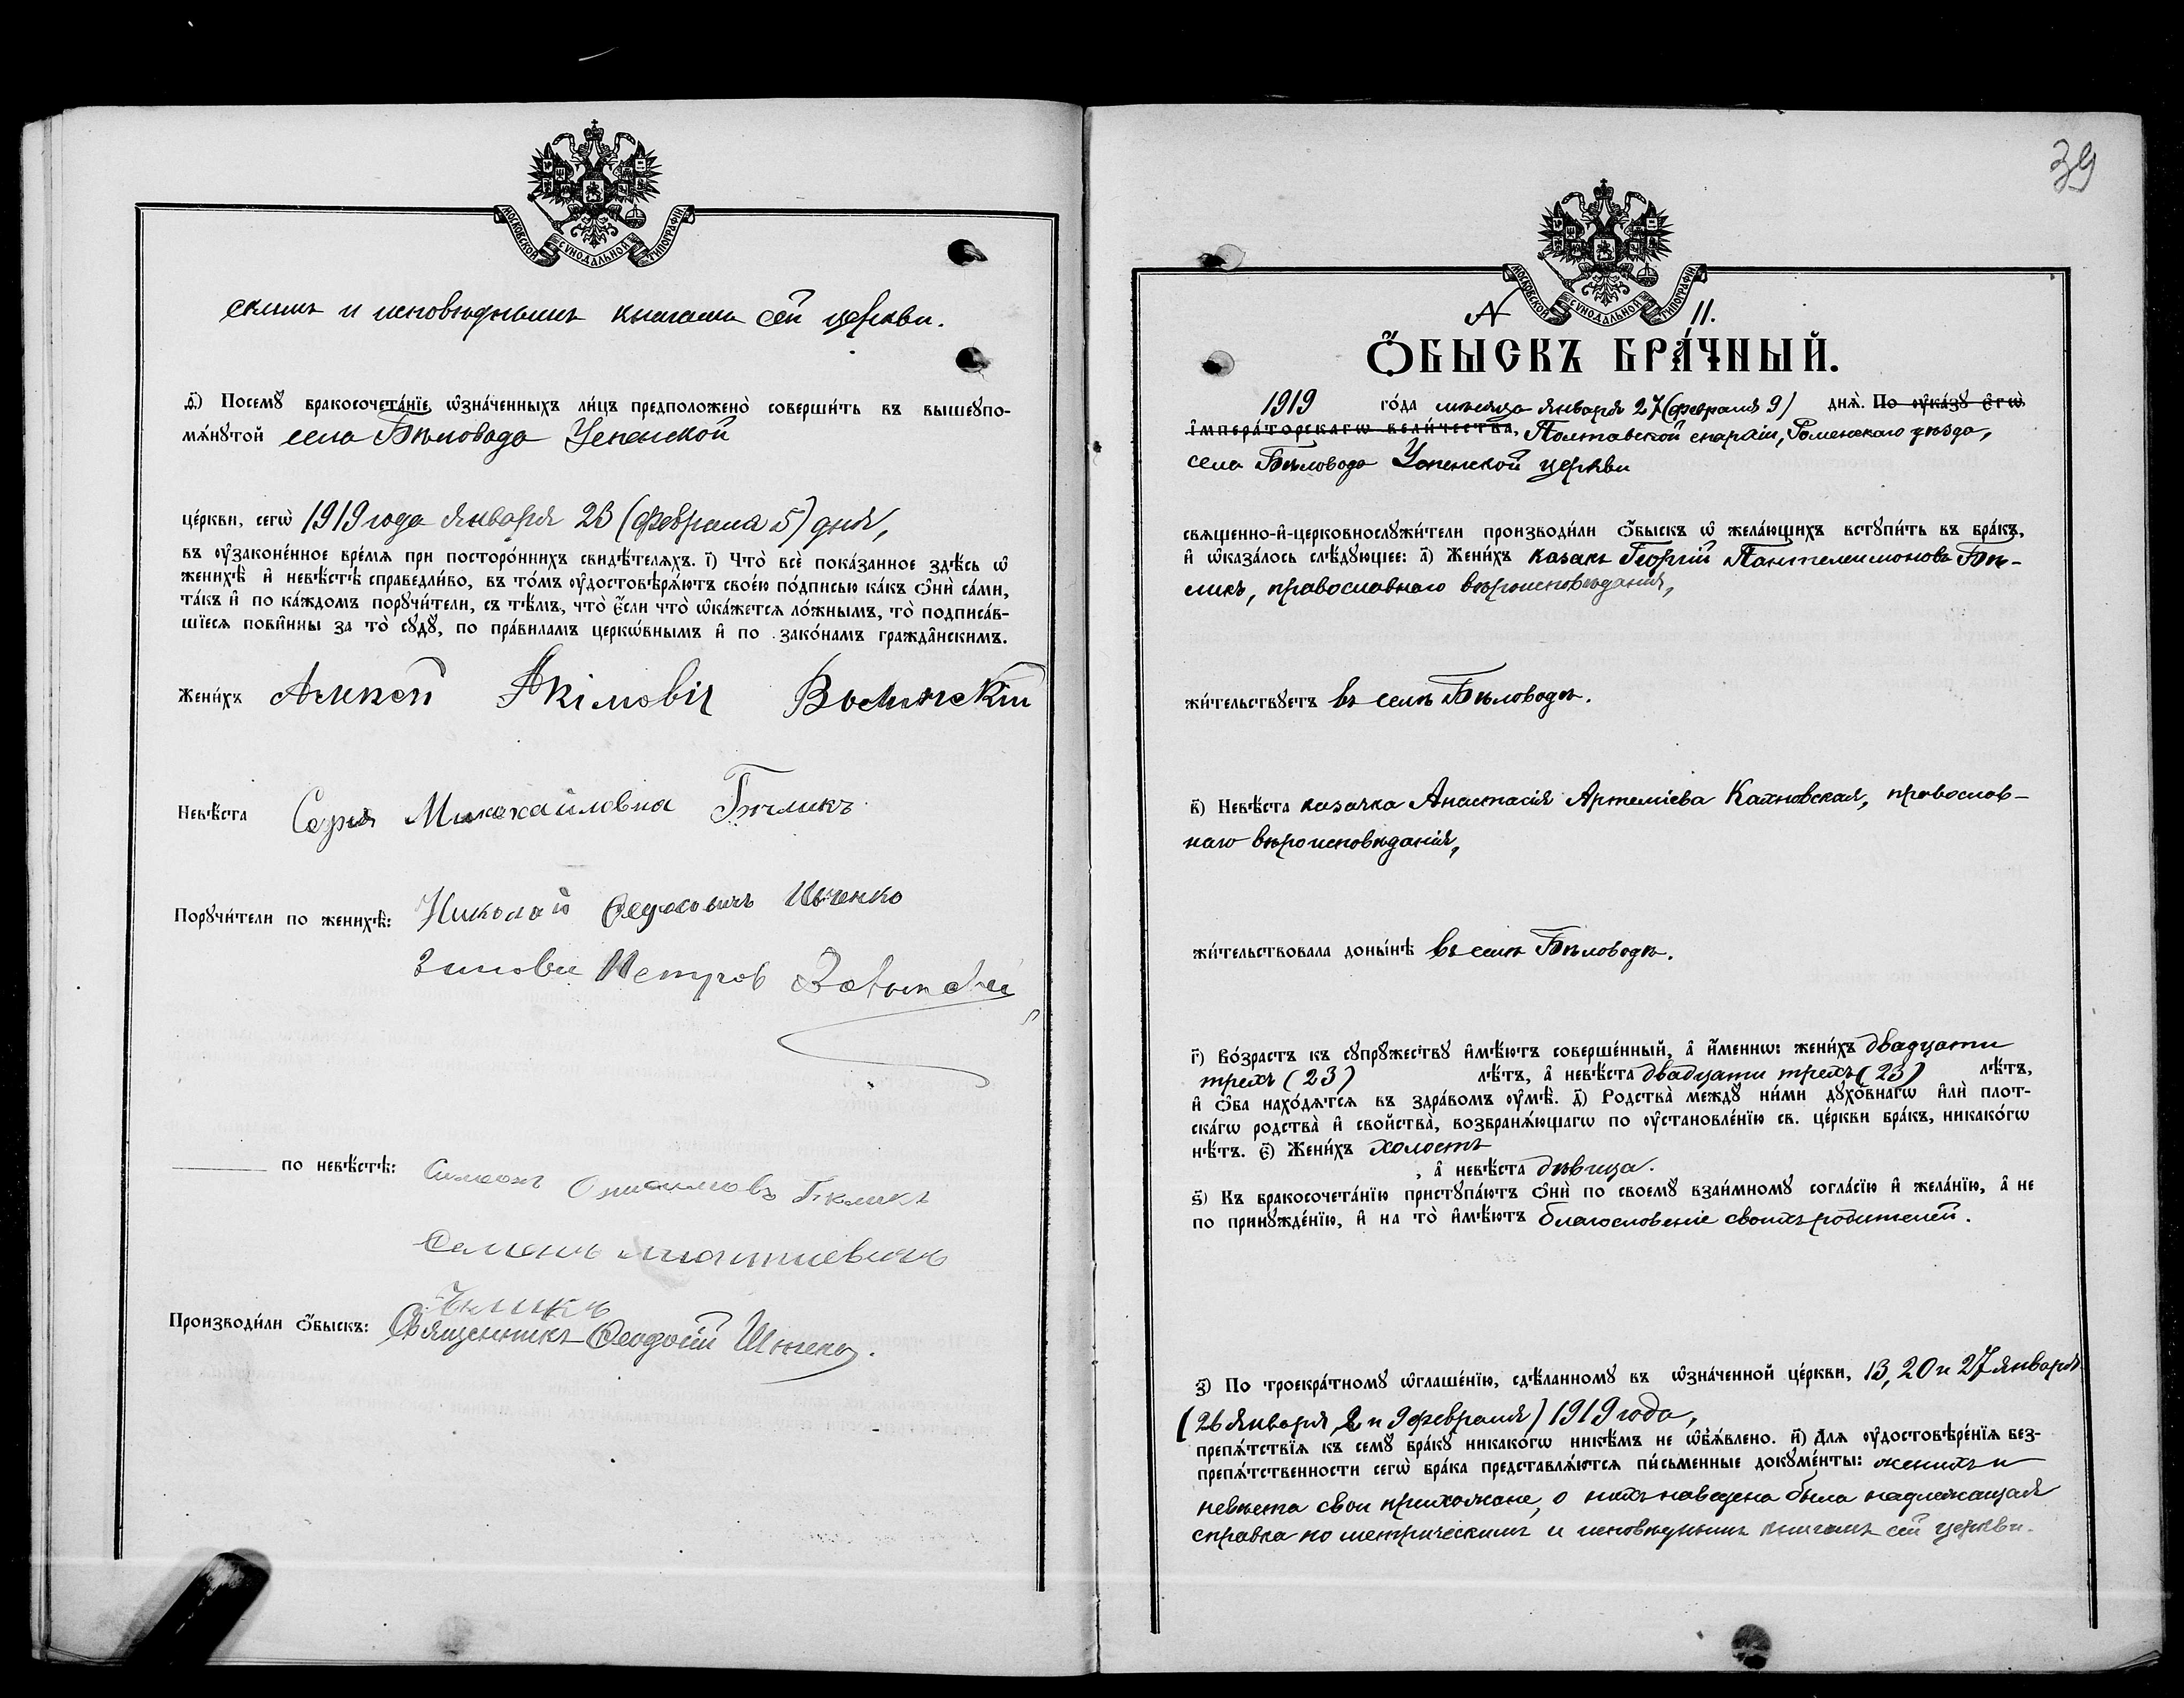 МОСКОВСКОЙ СѴНОДАЛЬНОЙ ТИПОГРАФІИ
скимъ и исповѣднымъ книгамъ сей церкви.
ѳ҃) Посемꙋ̀ бракосочета́нїе ѡ҆зна́ченныхъ ли́цъ предположено̀ соверши́ть въ вышеꙋпо-
мѧ́нꙋтой села Бѣловода Успенской
це́ркви, сегѡ̀ 1919 года января 23 (февраля 5) дня,
въ ᲂу҆законе́нное вре́мѧ при посторо́ннихъ свидѣ́телѧхъ. і҃) Что̀ всѐ пока́занное здѣ́сь ѡ҆
женихѣ̀ и҆ невѣ́стѣ справедли́во, въ то́мъ ᲂу҆достовѣрѧ́ютъ свое́ю по́дписью ка́къ ѻ҆нѝ са́ми,
та́къ и҆ по ка́ждомъ порꙋчи́тели, съ тѣ́мъ, что̀ є҆́сли что̀ ѡ҆ка́жетсѧ ло́жнымъ, то̀ подписа́в-
шїесѧ пови́нны за то̀ сꙋдꙋ̀, по пра́виламъ церкѡ́внымъ и҆ по зако́намъ гражда́нскимъ.
Жени́хъ Акімовіч
Невѣ́ста Михайловна Бѣликъ
Порꙋчи́тели по женихѣ̀: Николай
Петров
по невѣ́стѣ: Симеонъ Онисимовъ Бѣликъ
Семенъ
Бѣликъ
Производи́ли ѻ҆́быскъ: Священникъ Феодосій
39
МОСКОВСКОЙ СѴНОДАЛЬНОЙ ТИПОГРАФІИ
N 11.
Ѻ҆́БЫСКЪ БРА́ЧНЫЙ.
1919 го́да мѣсяца января 27 (февраля 9) днѧ̀. По ᲂу҆ка́зꙋ є҆гѡ̀
і҆мпера́торскагѡ вели́чества, Полтавской епархіи, Роменскаго уѣзда,
села Бѣловода Успенской церкви
свѧщенно-и҆-церковнослꙋжи́тели производи́ли ѻ҆́быскъ ѡ҆ жела́ющихъ встꙋпи́ть въ бра́къ,
и҆ ѡ҆каза́лось слѣ́дꙋющее: а҃) Жени́хъ казакъ Георгій Пантелеимоновъ Бѣ-
ликъ, православнаго вѣроисповѣданія,
жи́тельствꙋетъ въ селѣ Бѣловодѣ.
в҃) Невѣ́ста казачка Анастасія Артеміева православ-
наго вѣроисповѣданія,
жи́тельствовала доны́нѣ въ селѣ Бѣловодѣ.
г҃) Во́зрастъ къ сꙋпрꙋ́жествꙋ и҆мѣ́ютъ соверше́нный, а҆ и҆́меннѡ: жени́хъ двадцати
трехъ (23) лѣ́тъ, а҆ невѣ́ста двадцати трехъ (23) лѣ́тъ,
и҆ ѻ҆́ба нахо́дѧтсѧ въ здра́вомъ ᲂу҆мѣ̀. д҃) Родства̀ междꙋ ни́ми дꙋхо́внагѡ и҆лѝ плот-
ска́гѡ родства̀ и҆ свойства̀, возбранѧ́ющагѡ по ᲂу҆становле́нїю св. це́ркви бра́къ, никако́гѡ
нѣ́тъ. є҃) Жени́хъ холостъ
, а҆ невѣ́ста дѣвица.
ѕ҃) Къ бракосочета́нїю пристꙋпа́ютъ ѻ҆нѝ по своемꙋ̀ взаи́мномꙋ согла́сїю и҆ жела́нїю, а҆ не
по принꙋжде́нїю, и҆ на то̀ и҆мѣ́ютъ благословеніе своихъ родителей.
з҃) По троекра́тномꙋ ѡ҆глаше́нїю, сдѣ́ланномꙋ въ ѡ҆зна́ченной це́ркви, 13, 20 и 27 января
(26 января, 2 и 9 февраля) 1919 года,
препѧ́тствїѧ къ семꙋ̀ бра́кꙋ никако́гѡ никѣ́мъ не ѡ҆б̾ѧ́влено. и҃) Длѧ ᲂу҆достовѣре́нїѧ без-
препѧ́тственности сегѡ̀ бра́ка представлѧ́ютсѧ пи́сьменные докꙋме́нты: женихъ и
невѣста свои прихожане, о нихъ наведена была надлежащая
справка по метрическимъ и исповѣднымъ книгамъ сей церкви.